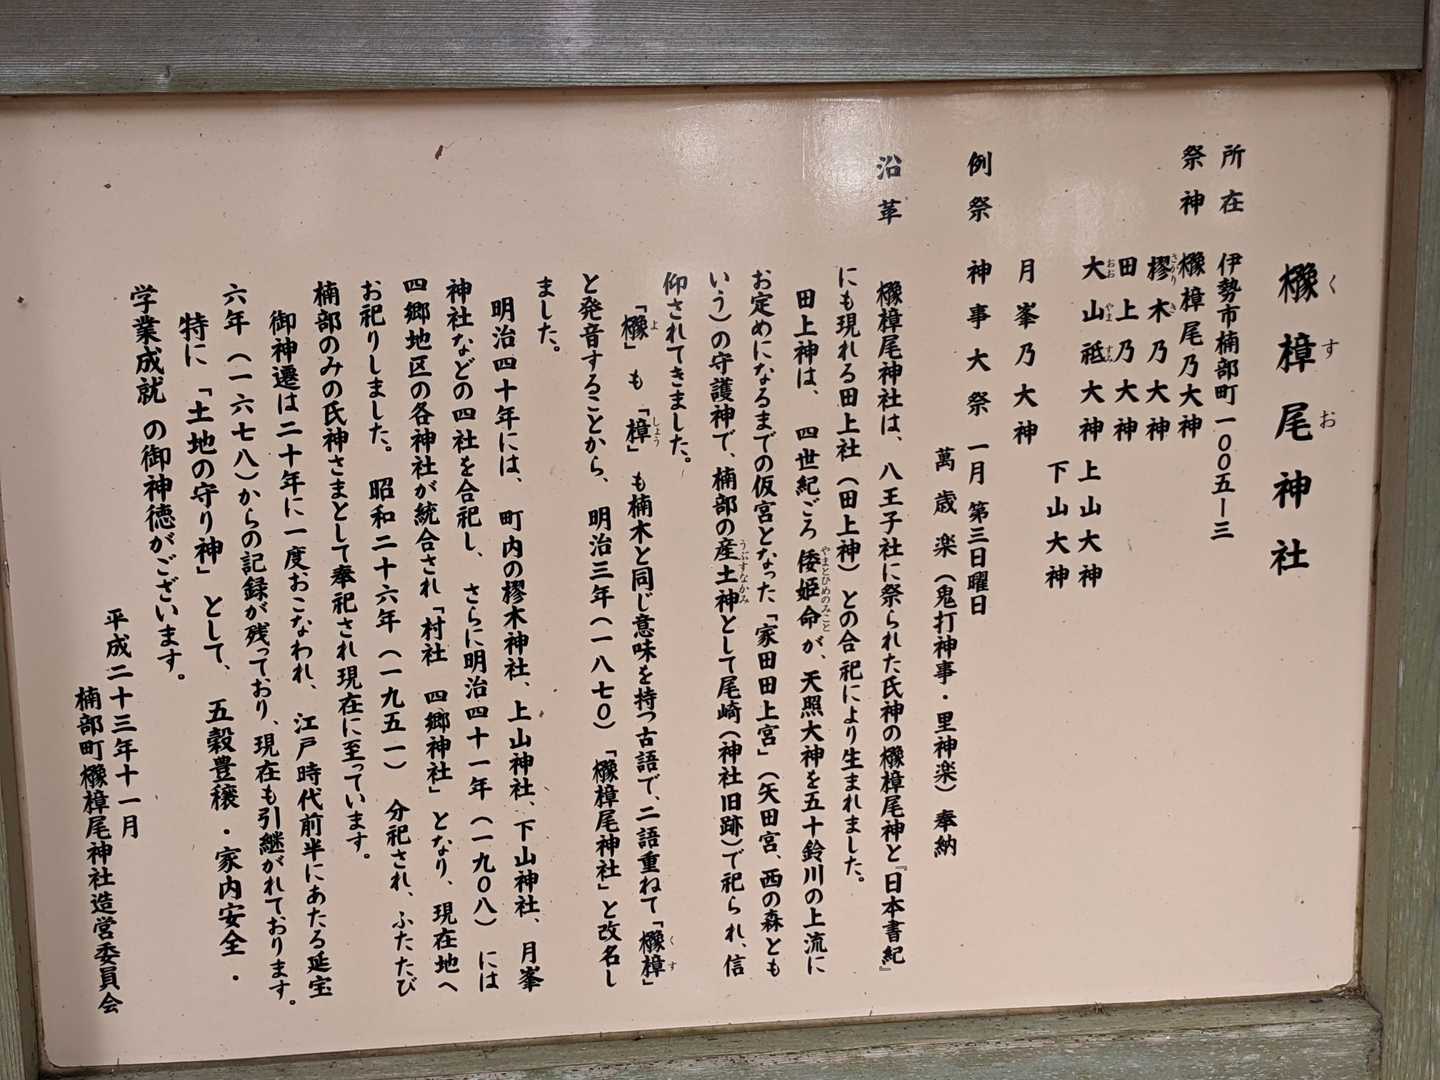 櫲樟尾神社
くすお
所在 伊勢市楠部町一〇〇五ー三
祭神 櫲樟尾乃大神
樛木乃大神
さがり き
田上乃大神
大山祗大神 上山大神
おお やま ずみ
下山大神
月峯乃大神
例祭 神事大祭 一月 第三日曜日
萬歳楽(鬼打神事・里神楽)奉納
沿革
櫲樟尾神社は、八王子社に祭られた氏神の櫲樟尾神と『日本書紀』
にも現れる田上社(田上神)との合祀により生まれました。
田上神は、四世紀ごろ倭姫命が、天照大神を五十鈴川の上流に
やまとひめのみこと
お定めになるまでの仮宮となった「家田田上宮」(矢田宮、西の森とも
いう)の守護神で、楠部の産土神として尾崎(神社旧跡)で祀られ、信
うぶすなかみ
仰されてきました。
「櫲」も「樟」も楠木と同じ意味を持つ古語で、二語重ねて「櫲樟」
よ しょう くす
と発音することから、明治三年(一八七〇)「櫲樟尾神社」と改名し
ました。
明治四十年には、町内の樛木神社、上山神社、下山神社、月峯
神社などの四社を合祀し、さらに明治四十一年(一九〇八)には
四郷地区の各神社が統合され「村社 四郷神社」となり、現在地へ
お祀りしました。昭和二十六年(一九五一)分祀され、ふたたび
楠部のみの氏神さまとして奉祀され現在に至っています。
御神遷は二十年に一度おこなわれ、江戸時代前半にあたる延宝
六年(一六七八)からの記録が残っており、現在も引継がれております。
特に「土地の守り神」として、五穀豊穣・家内安全・
学業成就の御神徳がございます。
平成二十三年十一月
楠部町櫲樟尾神社造営委員会